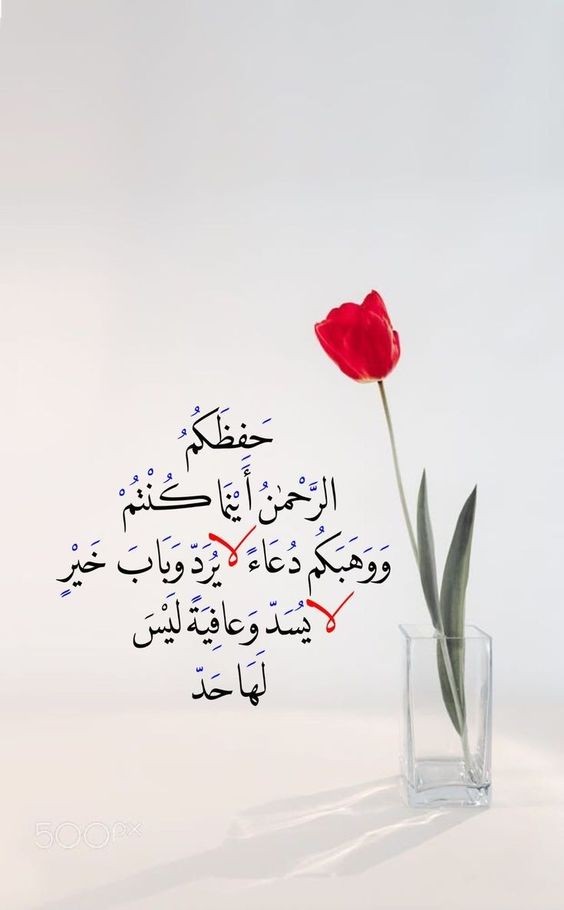 حَفِظَكُمُ
الرَّحْمٰنُ أَيْنَمَا كُنْتُمْ
وَوَهَبَكُم دُعَاءً لا يُرَدّ وَبَابَ خَيْرٍ
لا يُسَدّ وَعافِيَةً لَيْسَ
لَهَا حَدّ
500px